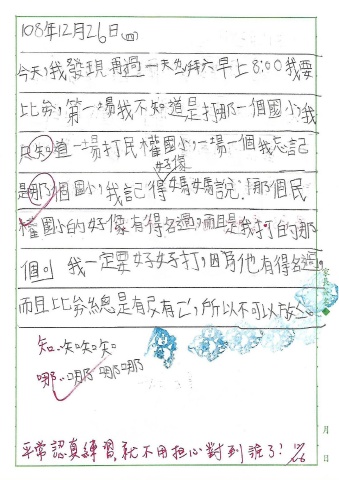 108年12月26日(四)
今天,我發現再過一天也拜六早上8:00我要
比分,第一場我不知道是打那一個國小,我
只知道一場打民權國小,一場一個我忘記
好像
是那個國小,我記得媽媽說:「那個民
權國小的好像有得名過,而且是我打的那
個」我一定要好好打,因為他有得名過。
而且比分總是有反有己,所以不可以放
知、知知知
哪、哪哪哪
平常認真練習,就不用担心對到誰了!
月 日